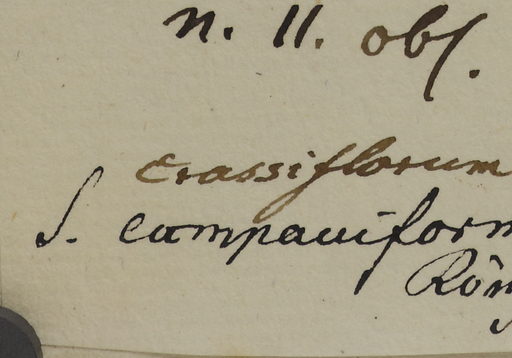 n. 11. obs.
crassiflorum
S. campaniform
Röm